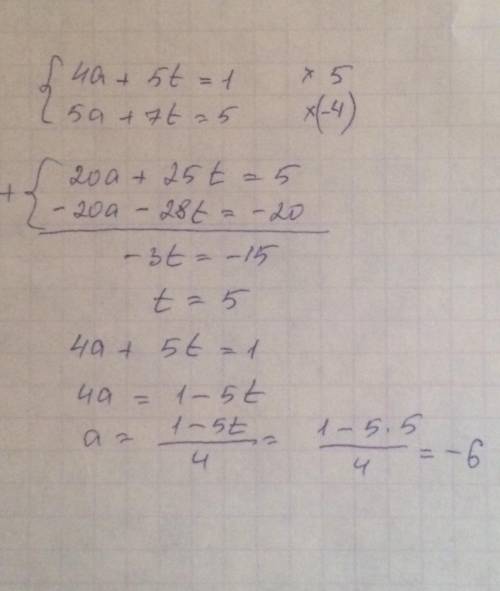 { 4a + 5t = 1 × 5
5a + 7t = 5 ×(-4)
+ { 20a + 25t = 5
-20a - 28t = -20
-3t = -15
t = 5
4a + 5t = 1
4a = 1 - 5t
a = (1-5t)/4 = (1-5·5)/4 = -6